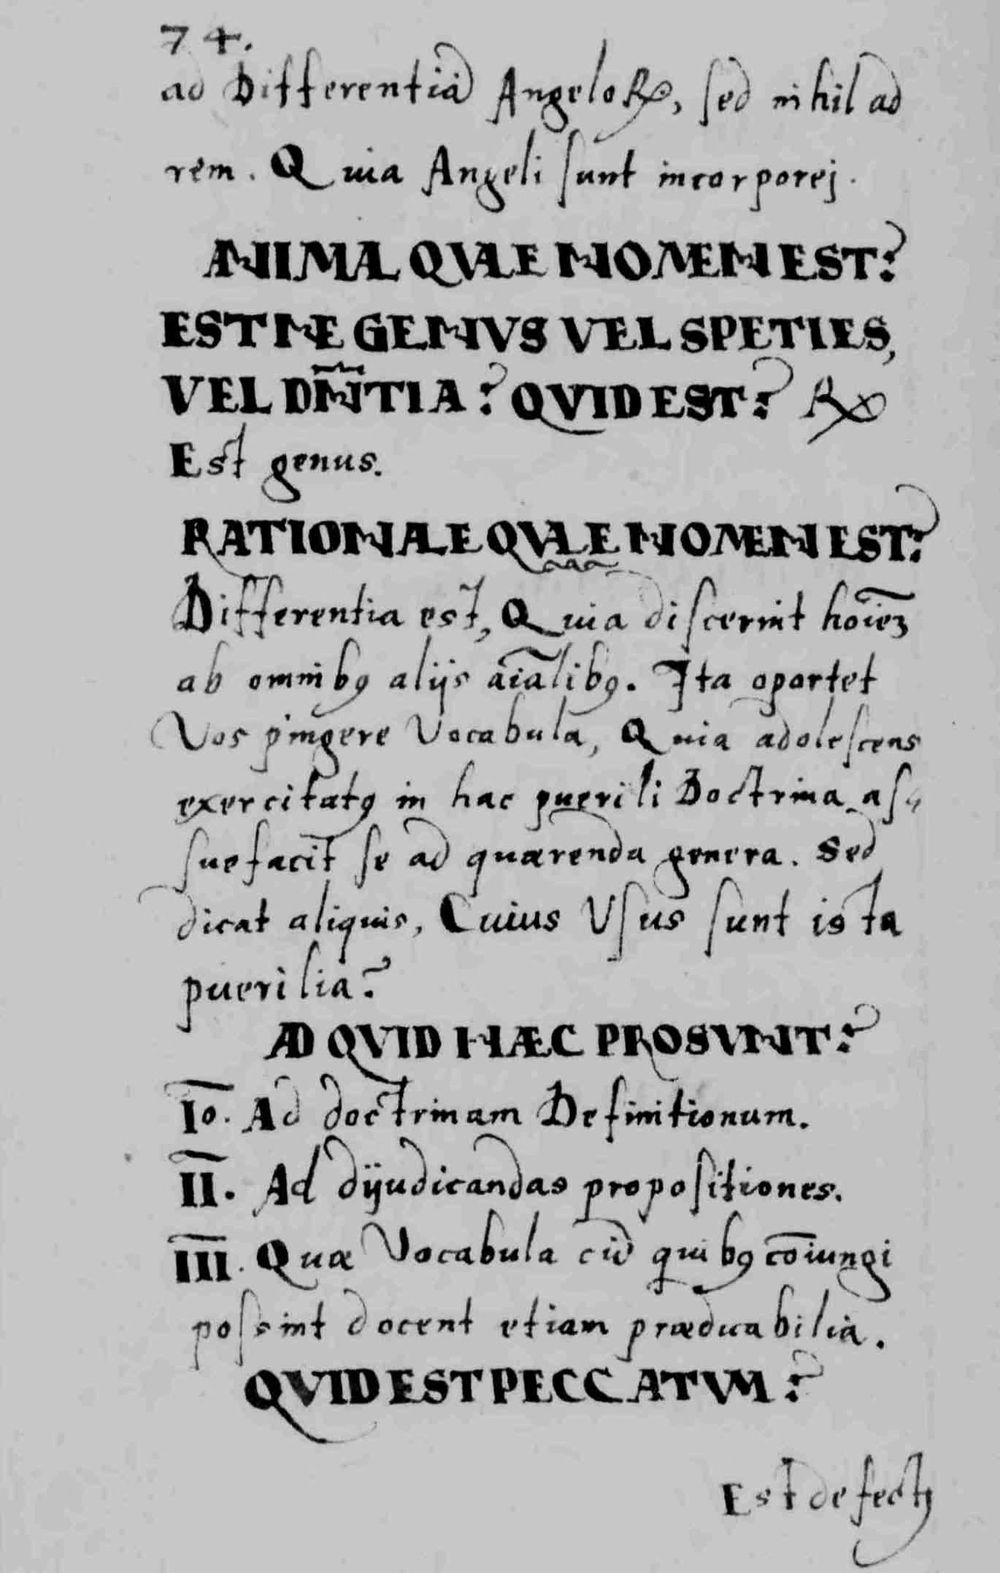 74.
ad Differentiā Angeloꝝ, sed nihil ad
rem. Quia Angeli sunt incorporej.
ANIMAL QVALE NOMEN EST?
ESTNE GENVS VEL SPETIES,
VEL DN̄TIA? QVID EST? ℞
Est genus.
RATIONALE QVALE NOMEN EST?
Differentia est, Quia discernit hoīeꝫ
ab omnibꝯ alijs aīalibꝯ. Ita oportet
Vos pingere Vocabula, Quia adolescens
exercitatꝯ in hac puerili Doctrina as-
suefacit se ad quærenda genera. Sed
dicat aliquis, Cuius Usus sunt ista
puerilia?
AD QVID HÆC PROSVNT?
Io. Ad doctrinam Definitionum.
II. Ad dijudicandas propositiones.
III. Quæ Vocabula cū quibꝯ cōiungi
possint docent etiam prædicabilia.
QVID EST PECCATVM?
Est defectꝯ